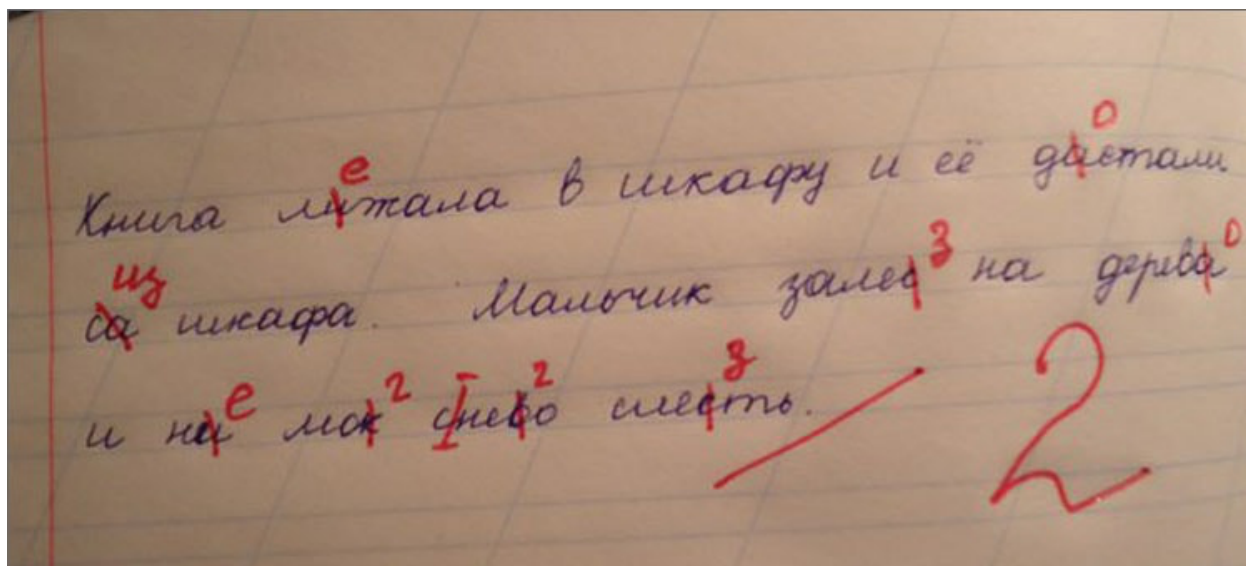 Книга лижала в шкафу и её дастали
са шкафа. Мальчик залес на дерева
и ни мок снево слесть.
е о
из з о
е г г з
2